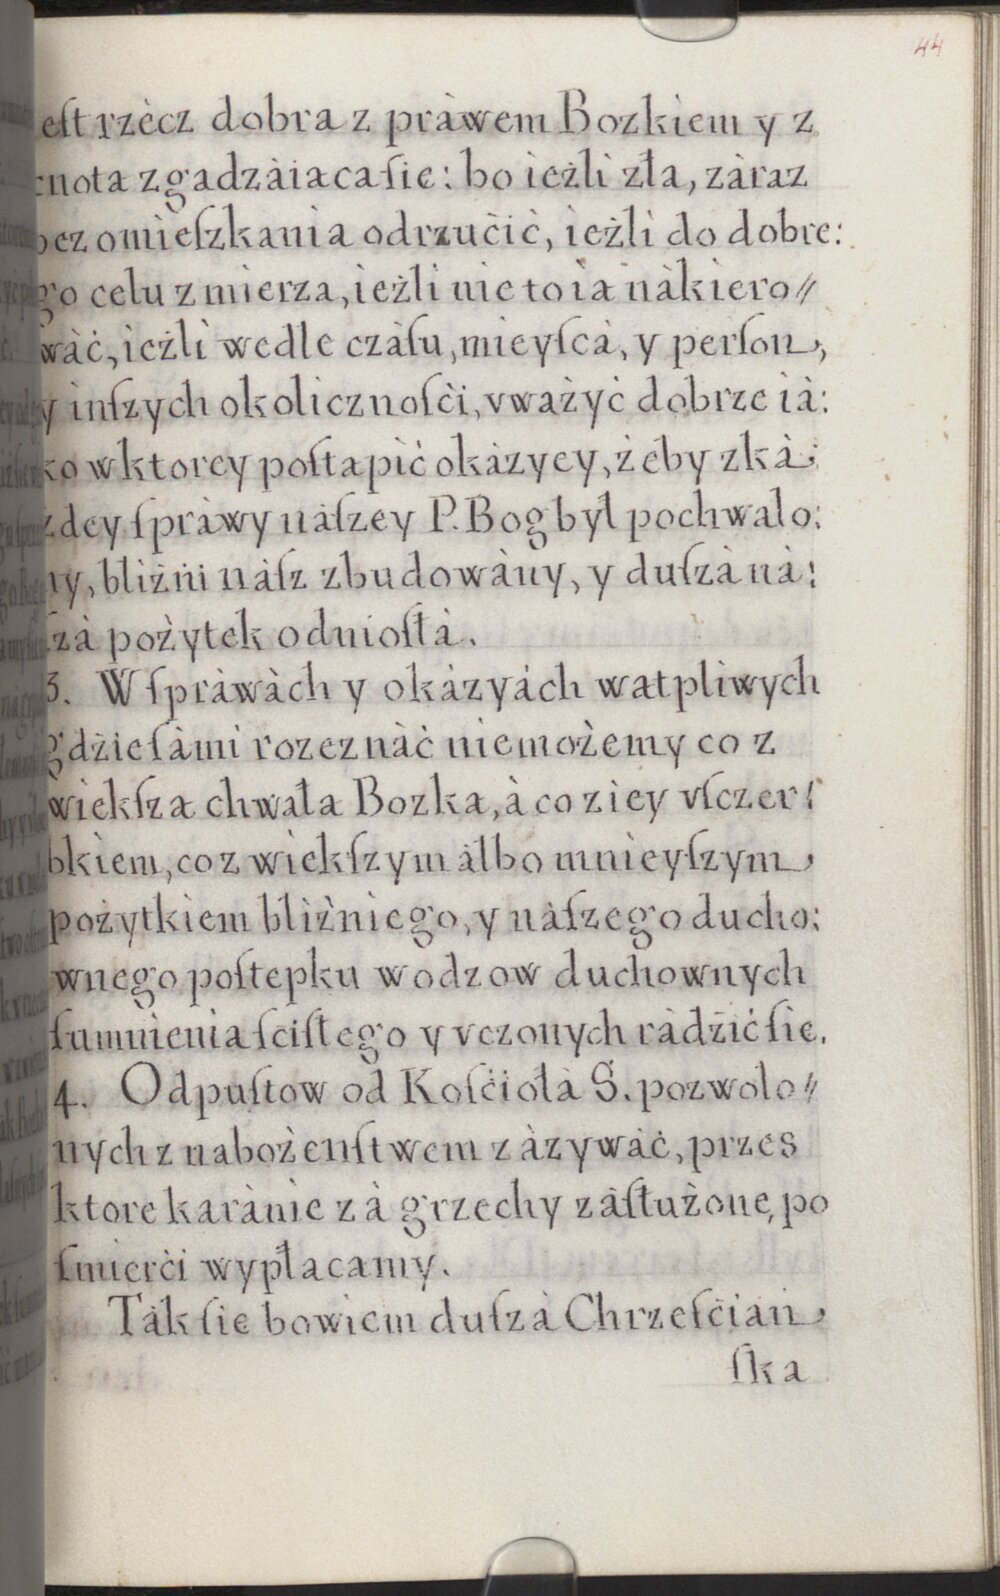 44
eſt rzècz dobra z pràwem Bozkiem y z
cnota zgadzàiaca ſie: bo ieżli zła, zàraz
bez omieſzkania odrzučić, ieżli do dobre:
go celu zmierza, ieżli nie to ia nàkiero//
wàć, ieżli wedle czàſu, mieyſcà, y perſon,
y inſzych okolicznoſči, vważyć dobrze ià:
ko wktorey poſtapić okàzyey, żeby zkà:
zdey ſpràwy nàſzey P. Bog był pochwalo:
ny, bliżni nàſz zbudowàny, y duſzà nà:
ſzà pożytek odnioſłà.
3. W ſpràwàch y okàzyàch watpliwych
gdżie ſàmi rozeznàć niemożemy co z
wiekſza chwała Bozka, à co z iey vſczer:
bkiem, co z wiekſzym àlbo mnieyſzym
pożytkiem bliżniego, y nàſzego ducho:
wnego poſtepku wodzow duchownych
ſumnienia ſciſłego y vczonych ràdżić ſie.
4. Odpuſtow od Koſčiołà S. pozwolo//
nych z nabożenſtwem zàzywàć, przes
ktore karànie zà grzechy zàſłużone, po
ſmierči wypłacamy.
Tàk ſie bowiem duſzà Chrzeſčiàn
ſka